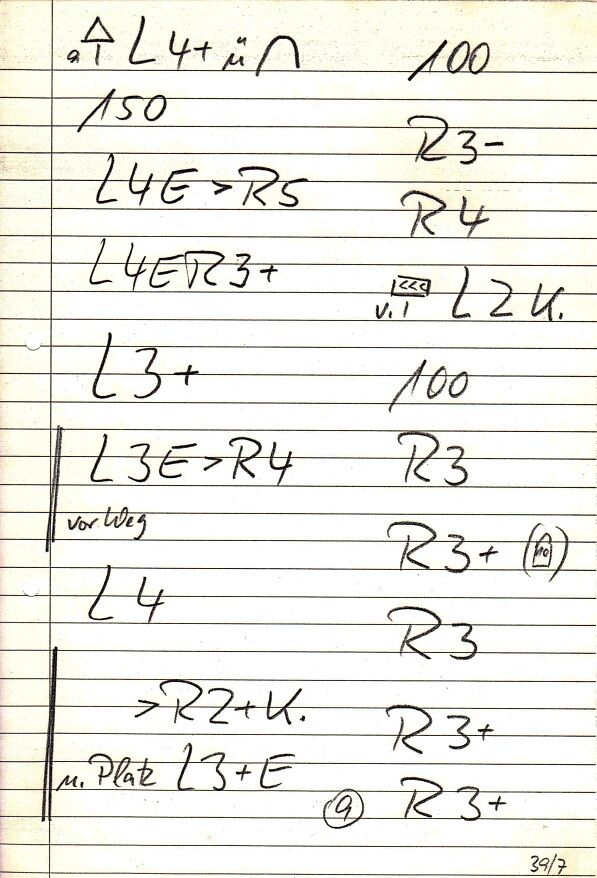 a L4+ ü
150
L4E>R5
L4ER3+
L3+
L3E>R4
vor Weg
L4
>R2+K.
n. Platz L3+E
100
R3-
R4
v. <<< L2K.
100
R3
R3+ (10)
R3
R3+
9 R3+
39/7